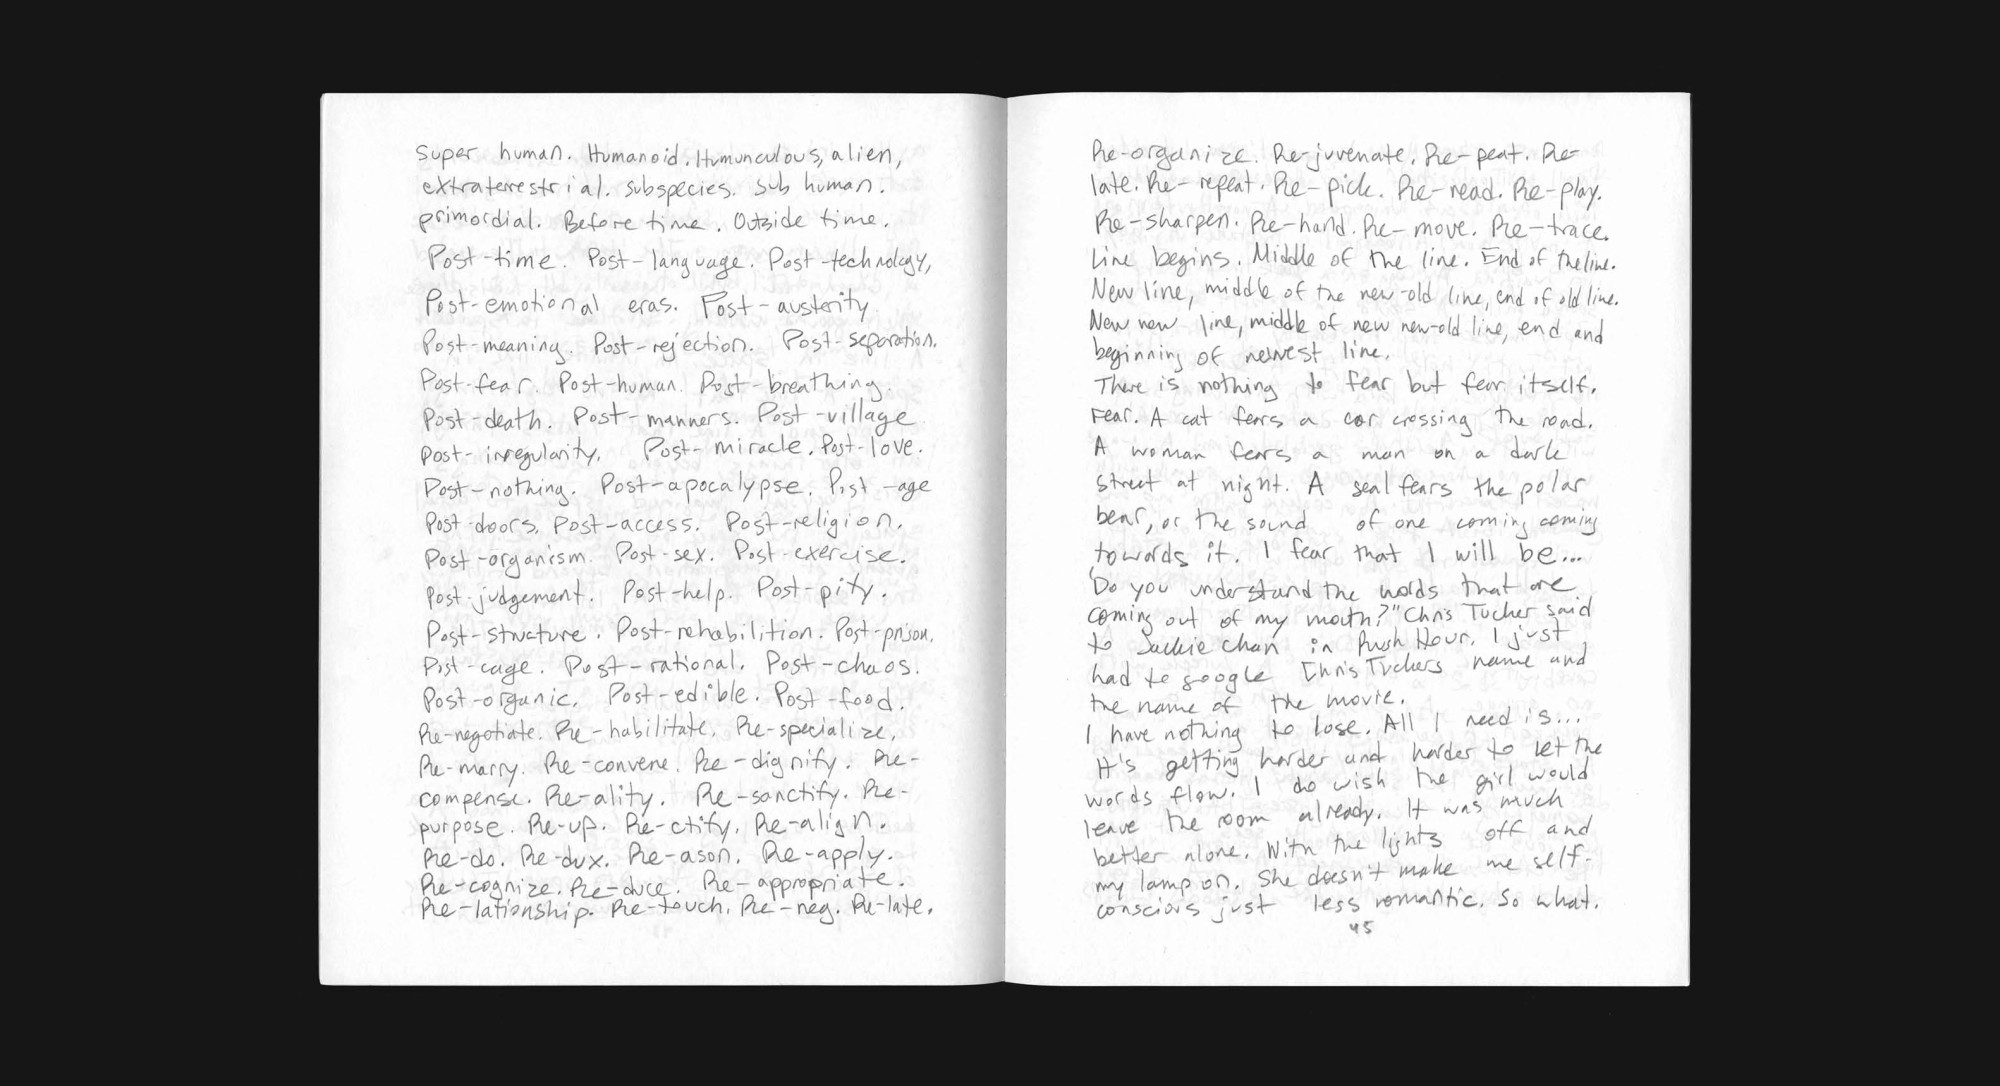 Super human. Humanoid. Humunculous, alien,
extraterrestrial. subspecies. Sub human.
primordial. Before time. Outside time.
Post-time. Post-language. Post-technology,
Post-emotional eras. Post-austerity
Post-meaning. Post-rejection. Post-separation.
Post-fear. Post-human. Post-breathing.
Post-death. Post-manners. Post-village
Post-irregularity. Post-miracle. Post-love.
Post-nothing. Post-apocalypse. Post-age
Post-doors. Post-access. Post-religion.
Post-organism. Post-sex. Post-exercise.
Post-judgement. Post-help. Post-pity.
Post-structure. Post-rehabilition. Post-prison.
Post-cage. Post-rational. Post-chaos.
Post-organic. Post-edible. Post-food.
Re-negotiate. Re-habilitate. Re-specialize.
Re-marry. Re-convene. Re-dignify. Re-
compense. Re-ality. Re-sanctify. Re-
purpose. Re-up. Re-ctify. Re-align.
Re-do. Re-dux. Re-ason. Re-apply.
Re-cognize. Re-duce. Re-appropriate.
Re-lationship. Re-touch. Re-neg. Re-late.
Re-organize. Re-juvenate. Re-peat. Re-
late. Re-repeat. Re-pick. Re-read. Re-play.
Re-sharpen. Re-hand. Re-move. Re-trace.
Line begins. Middle of the line. End of the line.
New line, middle of the new-old line, end of old line.
New new line, middle of new new-old line, end and
beginning of newest line.
There is nothing to fear but fear itself.
Fear. A cat fears a car crossing the road.
A woman fears a man on a dark
street at night. A seal fears the polar
bear, or the sound of one coming coming
towards it. I fear that I will be...
"Do you understand the words that are
coming out of my mouth?" Chris Tucker said
to Jackie Chan in Rush Hour. I just
had to google Chris Tuckers name and
the name of the movie.
I have nothing to lose. All I need is...
It's getting harder and harder to let the
words flow. I do wish the girl would
leave the room already. It was much
better alone. With the lights off and
my lamp on. She doesn't make me self-
conscious just less romantic. So what.
45